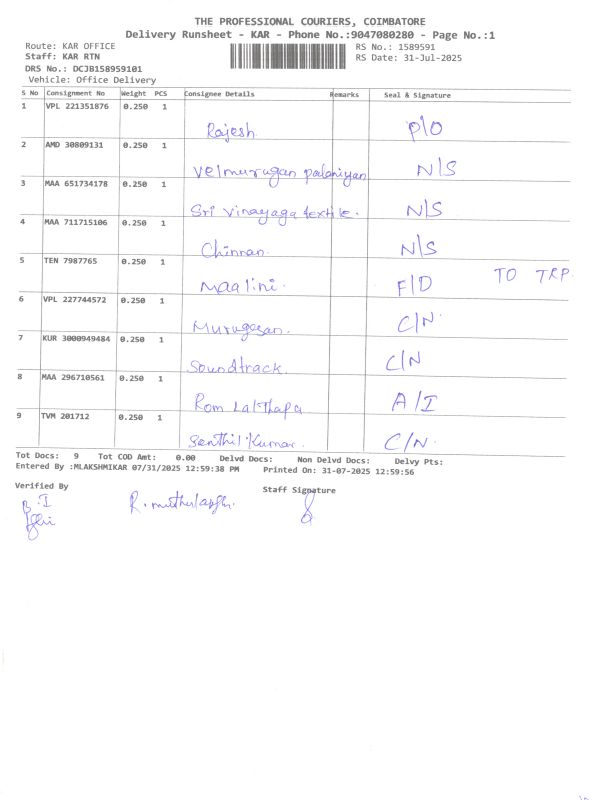 THE PROFESSIONAL COURIERS, COIMBATORE
Delivery Runsheet - KAR - Phone No.:9047080280 - Page No.:1
Route: KAR OFFICE RS No.: 1589591
Staff: KAR RTN RS Date: 31-Jul-2025
DRS No.: DCJB158959101
Vehicle: Office Delivery
S No Consignment No Weight PCS Consignee Details Remarks Seal & Signature
1 VPL 221351876 0.250 1 Rajesh. P/O
2 AMD 30809131 0.250 1 Velmurugan palaniyan N/S
3 MAA 651734178 0.250 1 Sri Vinayaga textile. N/S
4 MAA 711715106 0.250 1 Chinnan. N/S
5 TEN 7987765 0.250 1 Maalini. F/D TO TRP.
6 VPL 227744572 0.250 1 Murugesan. C/N.
7 KUR 3000949484 0.250 1 Soundtrack. C/N
8 MAA 296710561 0.250 1 Rom Lal Thapa A/I
9 TVM 201712 0.250 1 Senthil Kumar. C/N.
Tot Docs: 9 Tot COD Amt: 0.00 Delvd Docs: Non Delvd Docs: Delvy Pts:
Entered By :MLAKSHMIKAR 07/31/2025 12:59:38 PM Printed On: 31-07-2025 12:59:56
Verified By Staff Signature